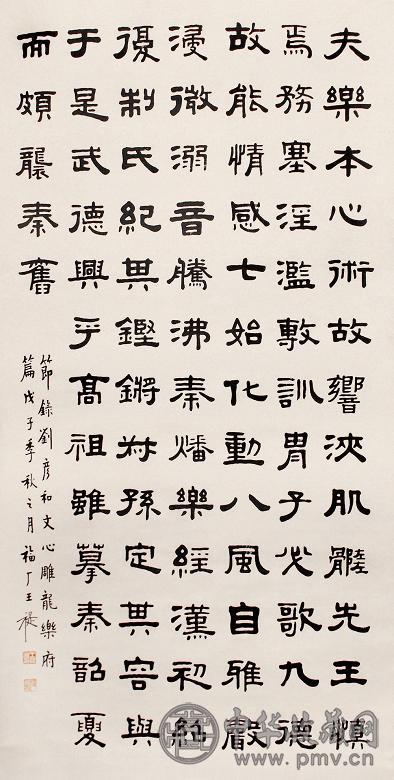 夫樂本心術故響浹肌髓先王慎
焉務塞淫濫敷訓胄子必歌九德
故能情感七始化動八風自雅聲
浸微溺音騰沸秦燔樂經漢初紹
復制氏紀其鏗鏘叔孫定其容與
于是武德興乎高祖雖摹秦韶夏
而頗襲秦舊
節錄劉彥和文心雕龍樂府
篇戊子季秋之月福厂王禔
中华收藏网
www.pmv.cn